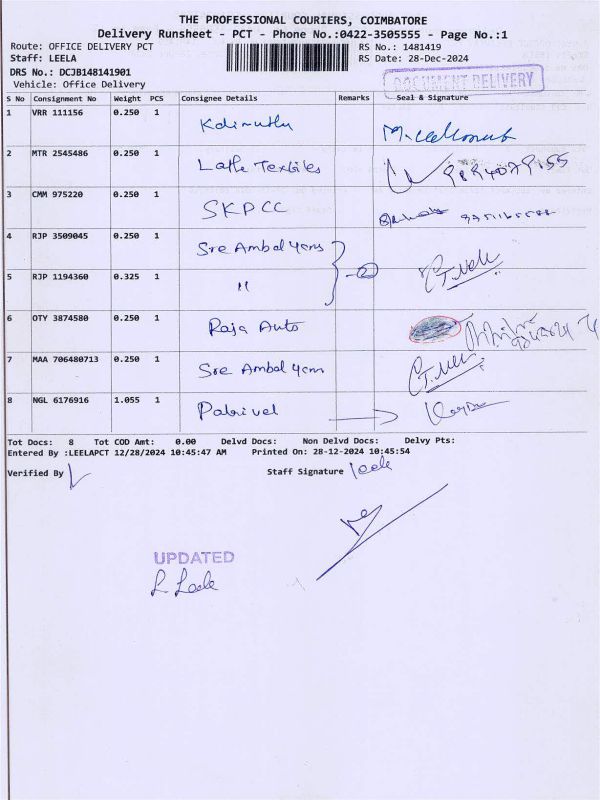 THE PROFESSIONAL COURIERS, COIMBATORE
Delivery Runsheet - PCT - Phone No.:0422-3505555 - Page No.:1
Route: OFFICE DELIVERY PCT RS No.: 1481419
Staff: LEELA RS Date: 28-Dec-2024
DRS No.: DCJB148141901
Vehicle: Office Delivery
DOCUMENT DELIVERY
S No Consignment No Weight PCS Consignee Details Remarks Seal & Signature
1 VRR 111156 0.250 1
2 MTR 2545486 0.250 1 Textiles
3 CMM 975220 0.250 1 SKPCC
4 RJP 3509045 0.250 1 Sre Ambal
5 RJP 1194360 0.325 1 " 2
6 OTY 3874580 0.250 1 Raja Auto
7 MAA 706480713 0.250 1 Sre Ambal
8 NGL 6176916 1.055 1
Tot Docs: 8 Tot COD Amt: 0.00 Delvd Docs: Non Delvd Docs: Delvy Pts:
Entered By :LEELAPCT 12/28/2024 10:45:47 AM Printed On: 28-12-2024 10:45:54
Verified By Staff Signature Leela
UPDATED
L. Leela